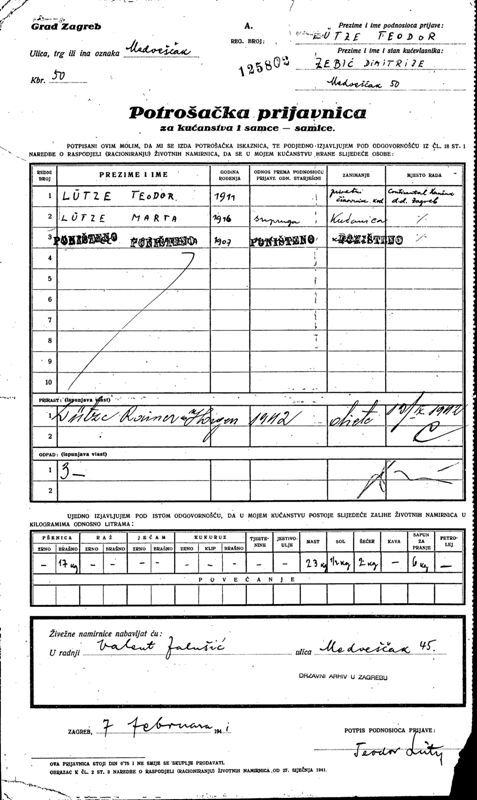 Grad Zagreb
A.
REG. BROJ:
125802
Prezime i ime podnosioca prijave:
LÜTZE TEODOR
Ulica, trg ili ina oznaka Medveščak
Prezime i ime i stan kućevlasnika:
ZEBIĆ DIMITRIJE
Kbr. 50
Medveščak 50
Potrošačka prijavnica
za kućanstva i samce — samice.
POTPISANI OVIM MOLIM, DA MI SE IZDA POTROŠAČKA ISKAZNICA, TE PODJEDNO IZJAVLJUJEM POD ODGOVORNOŠĆU IZ ČL. 18 ST. 1
NAREDBE O RASPODJELI (RACIONIRANJU) ŽIVOTNIH NAMIRNICA, DA SE U MOJEM KUĆANSTVU HRANE SLIJEDEĆE OSOBE:
REDNI BROJ PREZIME I IME GODINA ROĐENJA ODNOS PREMA PODNOSIOCU PRIJAVE ODN. STARJEŠINI ZANIMANJE MJESTO RADA
1 LÜTZE TEODOR 1911 privatni činovnik kod d.d. Zagreb
2 LÜTZE MARTA 1916 supruga Kućanica ٪
3 PONIŠTENO PONIŠTENO 1907 PONIŠTENO PONIŠTENO
4
5
6
7
8
9
10
PRIRAST: (Ispunjava vlast)
1 Lütze Rainer 1942 dijete 1942
2
OTPAD: (Ispunjava vlast)
1 3 —
2
UJEDNO IZJAVLJUJEM POD ISTOM ODGOVORNOŠĆU, DA U MOJEM KUĆANSTVU POSTOJE SLIJEDEĆE ZALIHE ŽIVOTNIH NAMIRNICA U
KILOGRAMIMA ODNOSNO LITRAMA:
PŠENICA RAŽ JEČAM KUKURUZ TJESTENINE JESTIVO ULJE MAST SOL ŠEĆER KAVA SAPUN ZA PRANJE PETROLEJ
ZRNO BRAŠNO ZRNO BRAŠNO ZRNO BRAŠNO ZRNO KLIP BRAŠNO
– 17 kg – – – – – – – – – 23 kg ½ kg 2 kg – 6 kg –
POVEĆANJE
Živežne namirnice nabavljat ću:
U radnji Valent Jalušić ulica Medveščak 45.
DRŽAVNI ARHIV U ZAGREBU
ZAGREB, 7 februara 1941
POTPIS PODNOSIOCA PRIJAVE:
Teodor Lütze
OVA PRIJAVNICA STOJI DIN 0'75 I NE SMIJE SE SKUPLJE PRODAVATI.
OBRAZAC K ČL. 2 ST. 3 NAREDBE O RASPODJELI (RACIONIRANJU) ŽIVOTNIH NAMIRNICA OD 27. SIJEČNJA 1941.